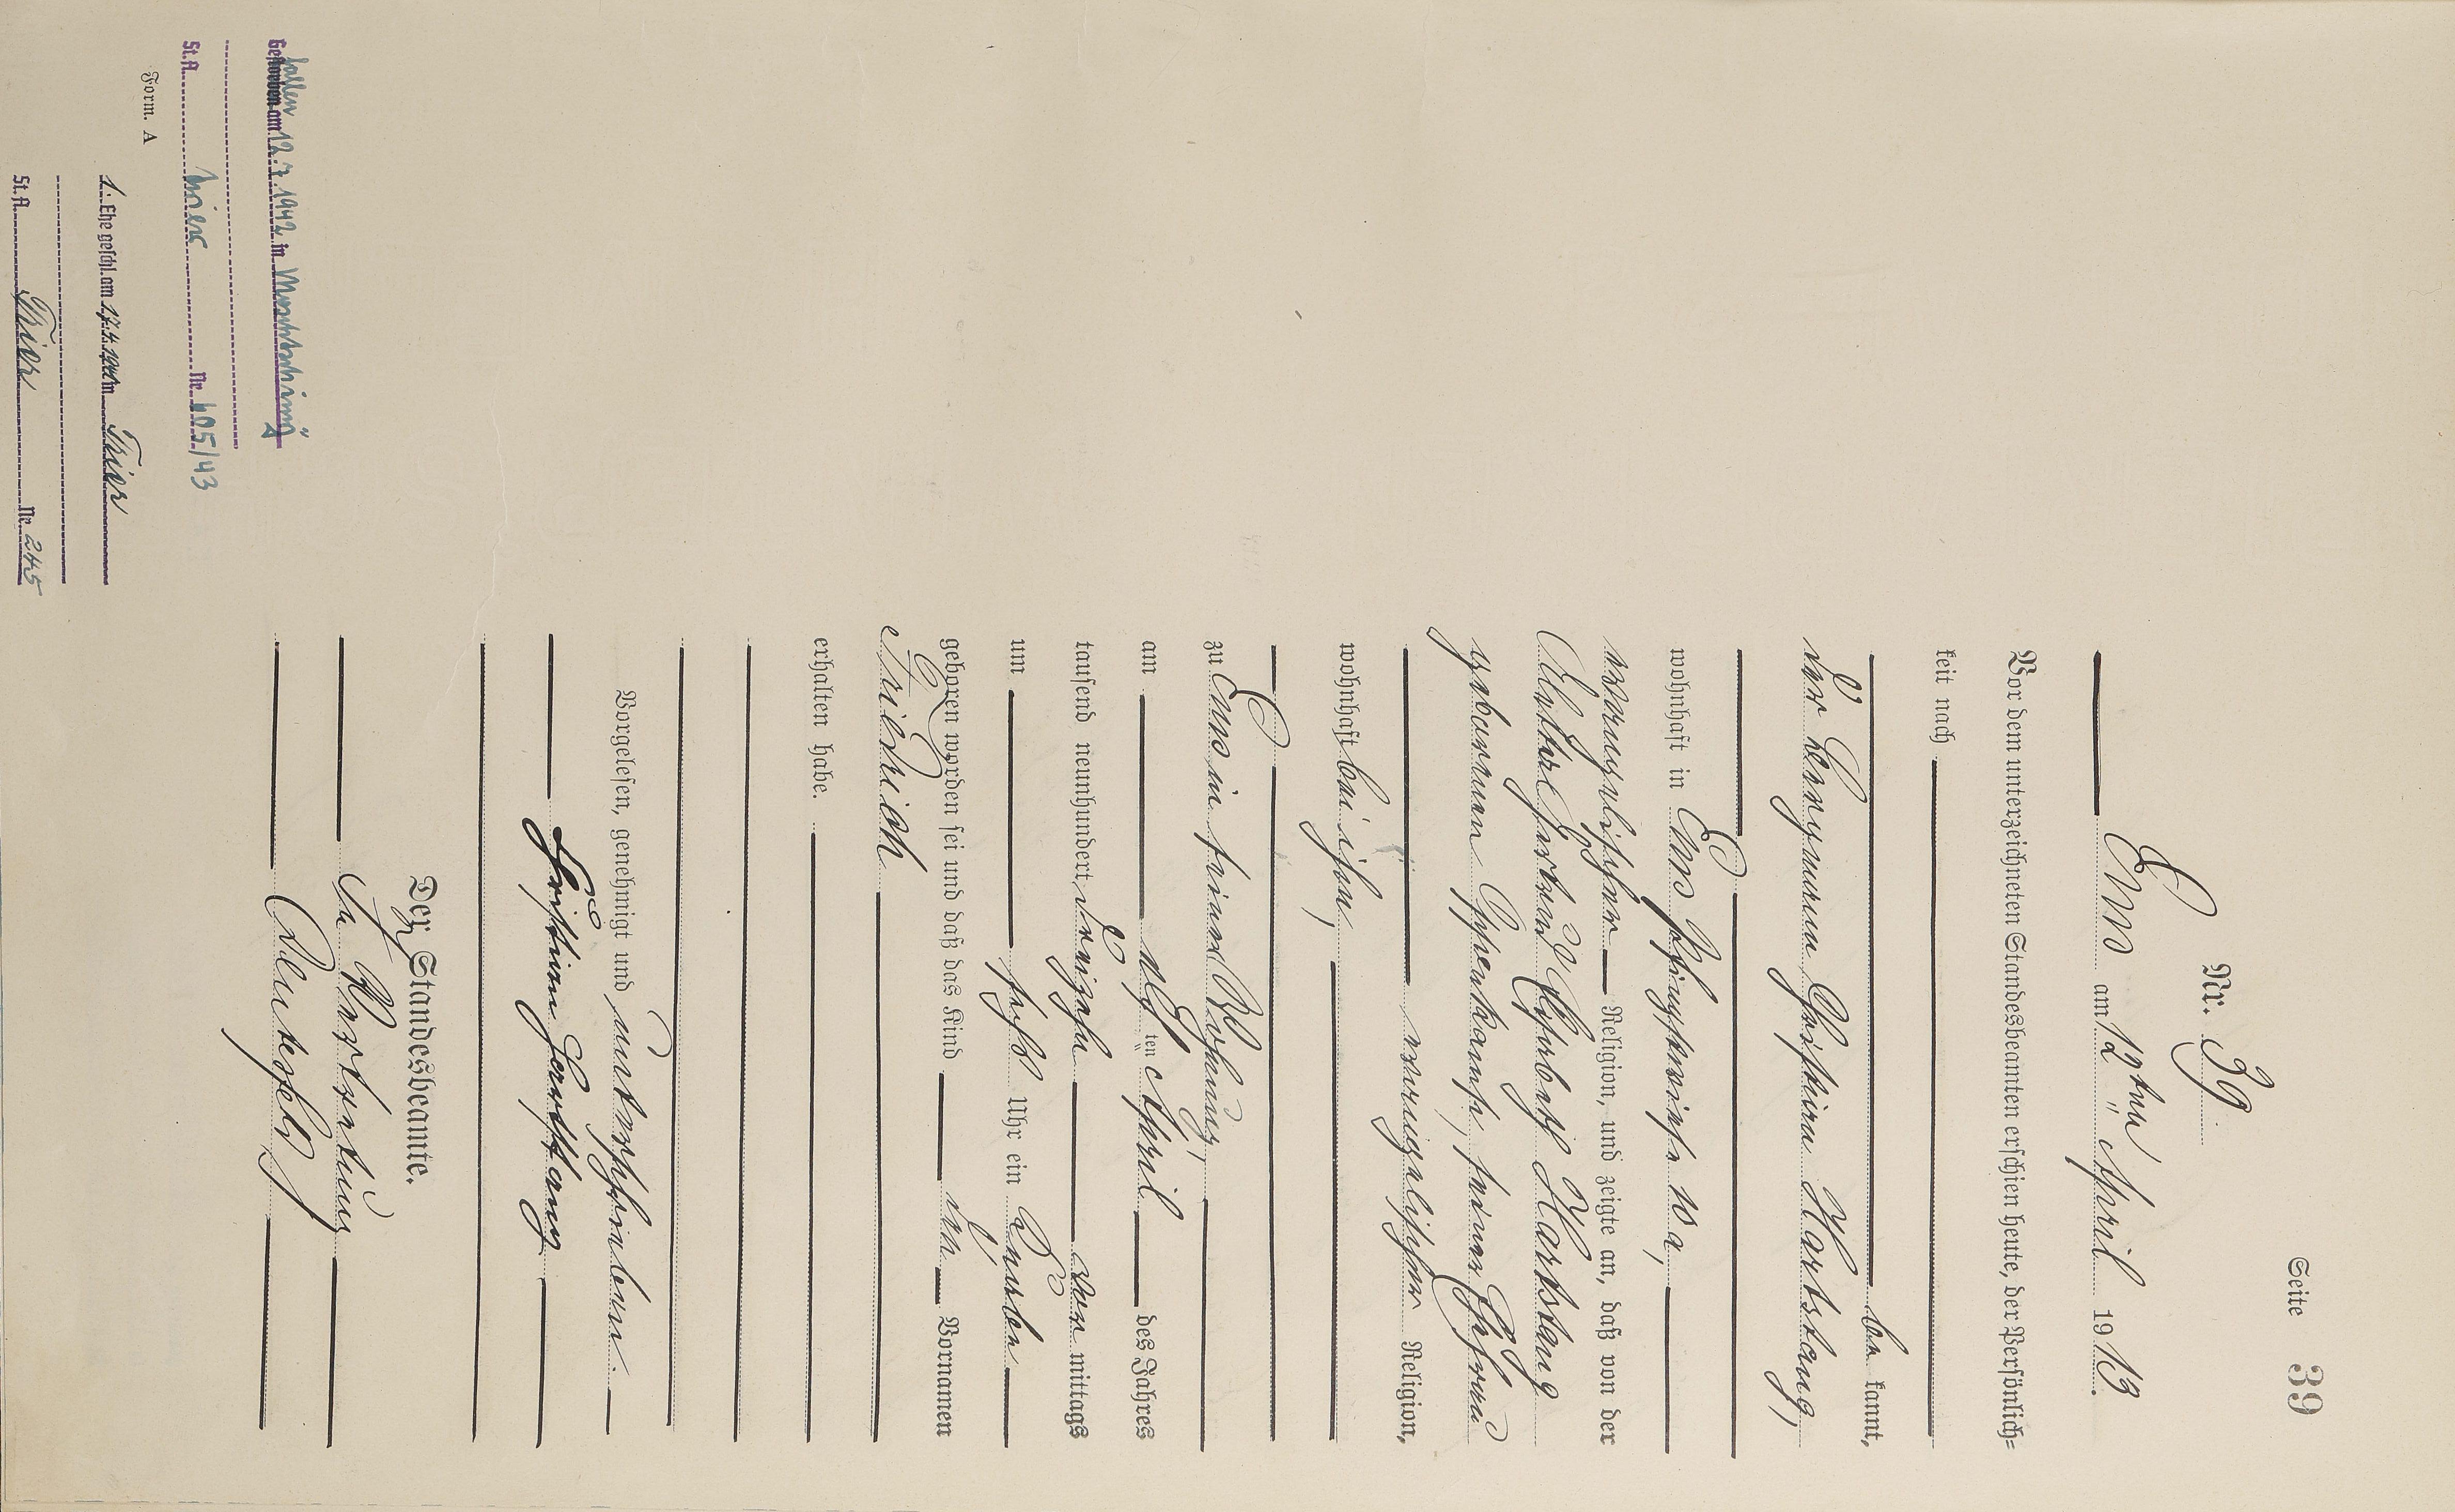 Seite 39
Nr. 39.
Ems am 12ten April 1913.
Vor dem unterzeichneten Standesbeamten erschien heute, der Persönlich=
keit nach
be kannt,
der Christian Hartstang,
wohnhaft in Ems 10 a,
evangelischer Religion, und zeigte an, daß von der
Hartstang
geborenen seiner Ehefrau
evangelischer Religion,
wohnhaft bei ihm,
zu Ems in seiner Wohnung,
am elf ten April des Jahres
tausend neunhundert dreizehn Vor mittags
um sechs Uhr ein Knabe
geboren worden sei und daß das Kind den Vornamen
Friedrich
erhalten habe.
Vorgelesen, genehmigt und unterschrieben.
Christian Hartstang
Der Standesbeamte.
In Vertretung
Gefallen am 12.7.1942 in
St.A. Trier Nr. 605/43
Form. A
1. Ehe geschl. am in Trier
St.A. Trier Nr. 245